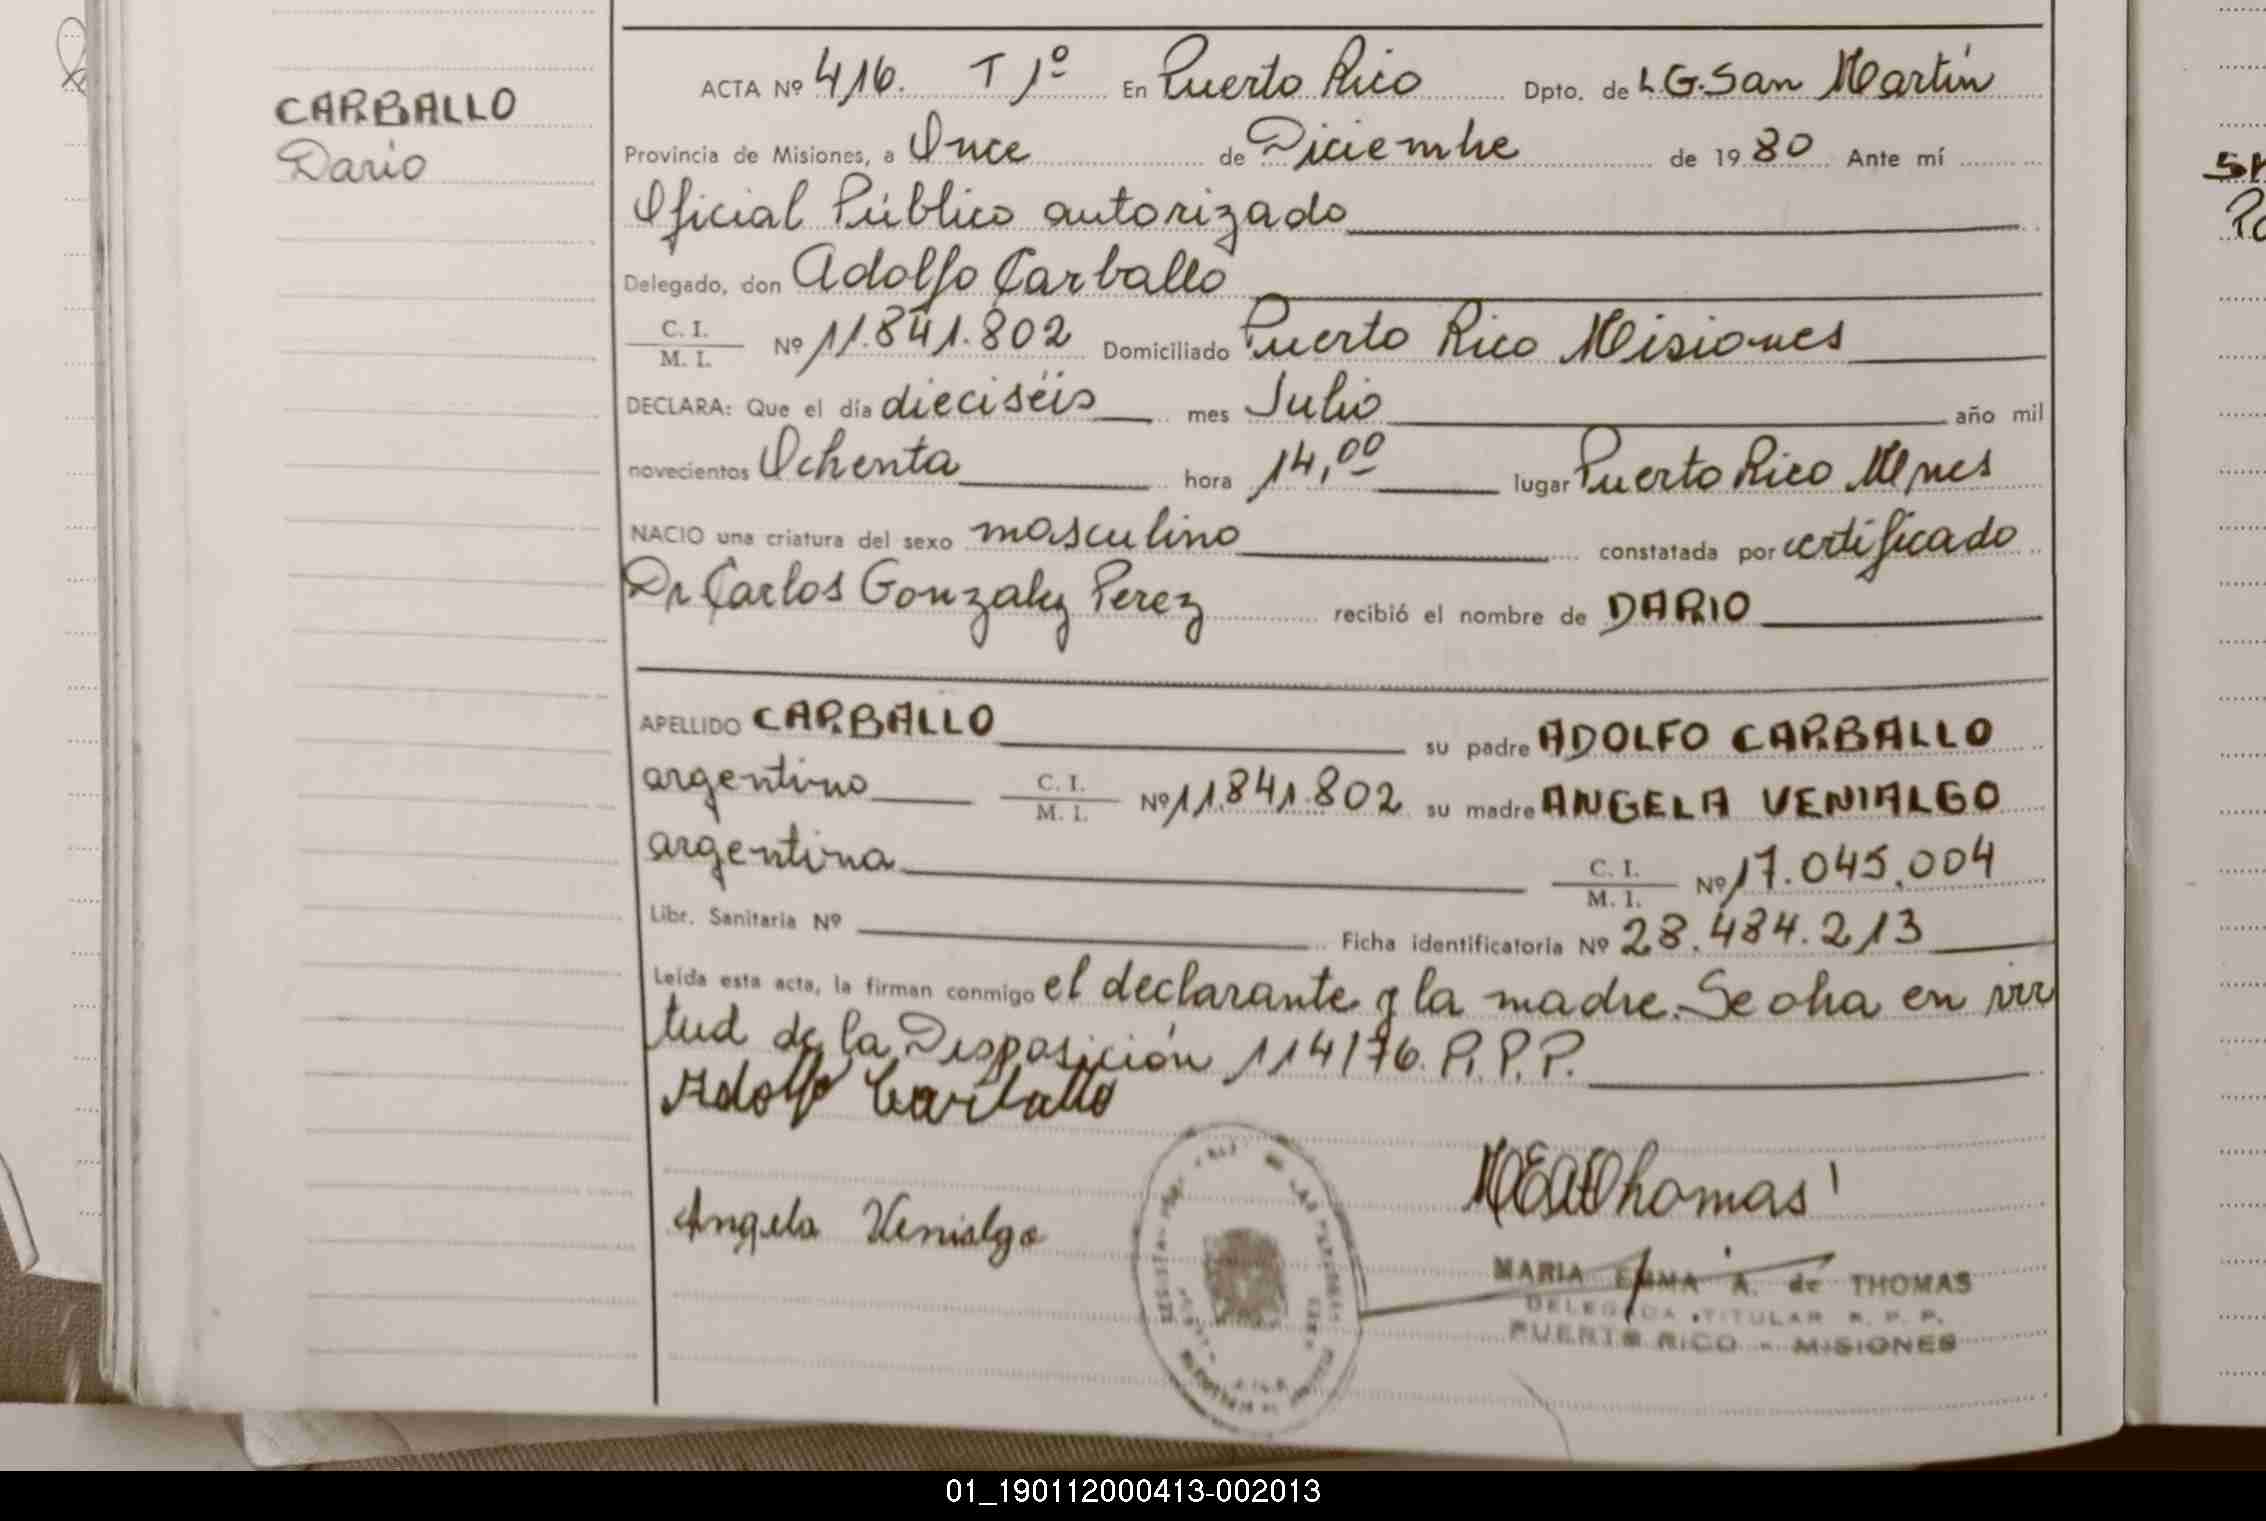 CARBALLO
Dario
ACTA Nº 416. T 1º En Puerto Rico Dpto. de L G. San Martín
Provincia de Misiones, a Once de Diciembre de 19 80 Ante mí
Oficial Público autorizado
Delegado, don Adolfo Carballo
C. I.
M. I. Nº 11.841.802 Domiciliado Puerto Rico Misiones
DECLARA: Que el día dieciséis mes Julio año mil
novecientos Ochenta hora 14,00 lugar Puerto Rico Mnes
NACIO una criatura del sexo masculino constatada por certificado
Dr Carlos Gonzalez Perez recibió el nombre de DARIO
APELLIDO CARBALLO su padre ADOLFO CARBALLO
argentino C. I.
M. I. Nº 11.841.802 su madre ANGELA VENIALGO
argentina C. I.
M. I. Nº 17.045.004
Libr. Sanitaria Nº Ficha identificatoria Nº 28.484.213
Leída esta acta, la firman conmigo el declarante y la madre. Se en vir
tud de la Disposición 114/76. P.P.P.
Adolfo Carballo
Thomas
Angela Venialgo
MARIA EMMA A. de THOMAS
DELEGADA TITULAR R. P. P.
PUERTO RICO - MISIONES
SH
Pa
01_190112000413-002013